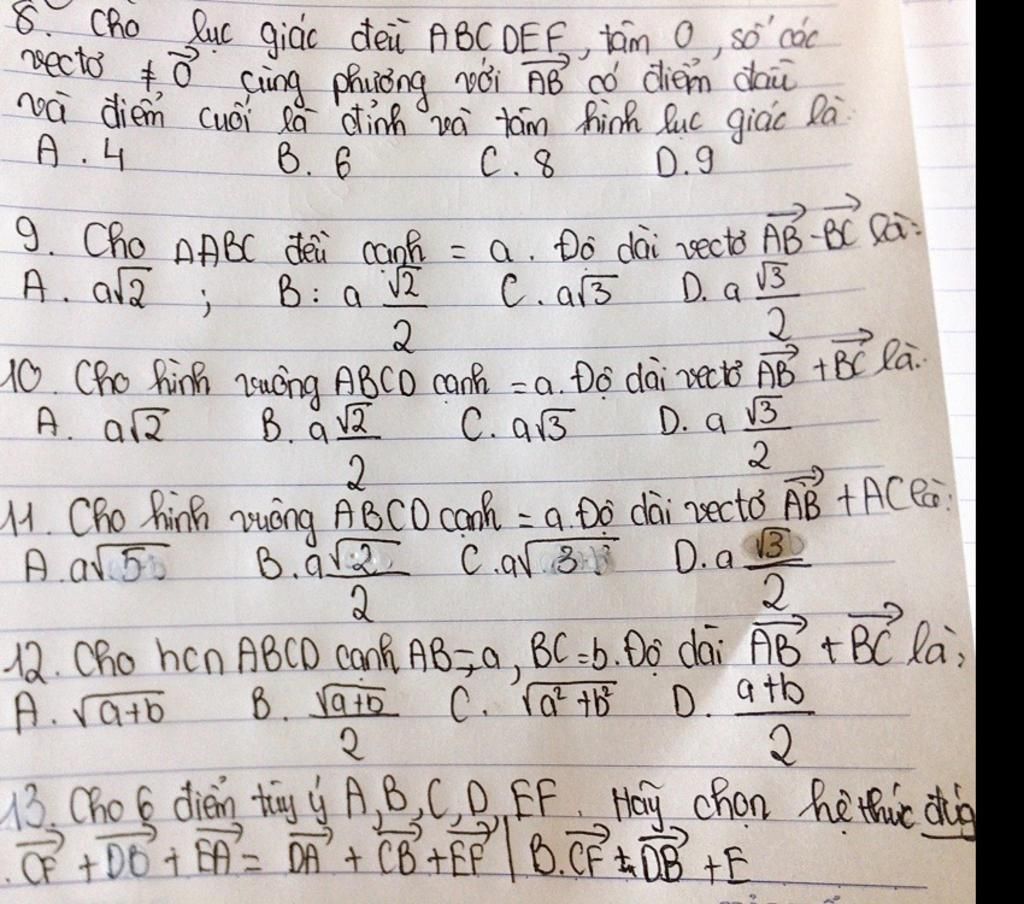 8. Cho lục giác đều ABCDEF, tâm O, số các
vectơ ≠ \vec{0} cùng phương với \vec{AB} có điểm đầu
và điểm cuối là đỉnh và tâm hình lục giác là:
A. 4 B. 6 C. 8 D. 9
9. Cho ΔABC đều cạnh = a. Độ dài vectơ \vec{AB} - \vec{BC} là:
A. a√2 ; B: a √2/2 C. a√3 D. a √3/2
10. Cho hình vuông ABCD cạnh = a. Độ dài vectơ \vec{AB} + \vec{BC} là:
A. a√2 B. a √2/2 C. a√3 D. a √3/2
11. Cho hình vuông ABCD cạnh = a. Độ dài vectơ \vec{AB} + AC là:
A. a√5 B. a √2/2 C. a√3 D. a √3/2
12. Cho hcn ABCD cạnh AB = a, BC = b. Độ dài \vec{AB} + \vec{BC} là;
A. √(a+b) B. √(a+b)/2 C. √(a² + b²) D. (a+b)/2
13. Cho 6 điểm tùy ý A, B, C, D, EF. Hãy chọn hệ thức đúg
. \vec{CF} + \vec{DB} + \vec{EA} = \vec{DA} + \vec{CB} + \vec{EF} | B. \vec{CF} + \vec{DB} + E